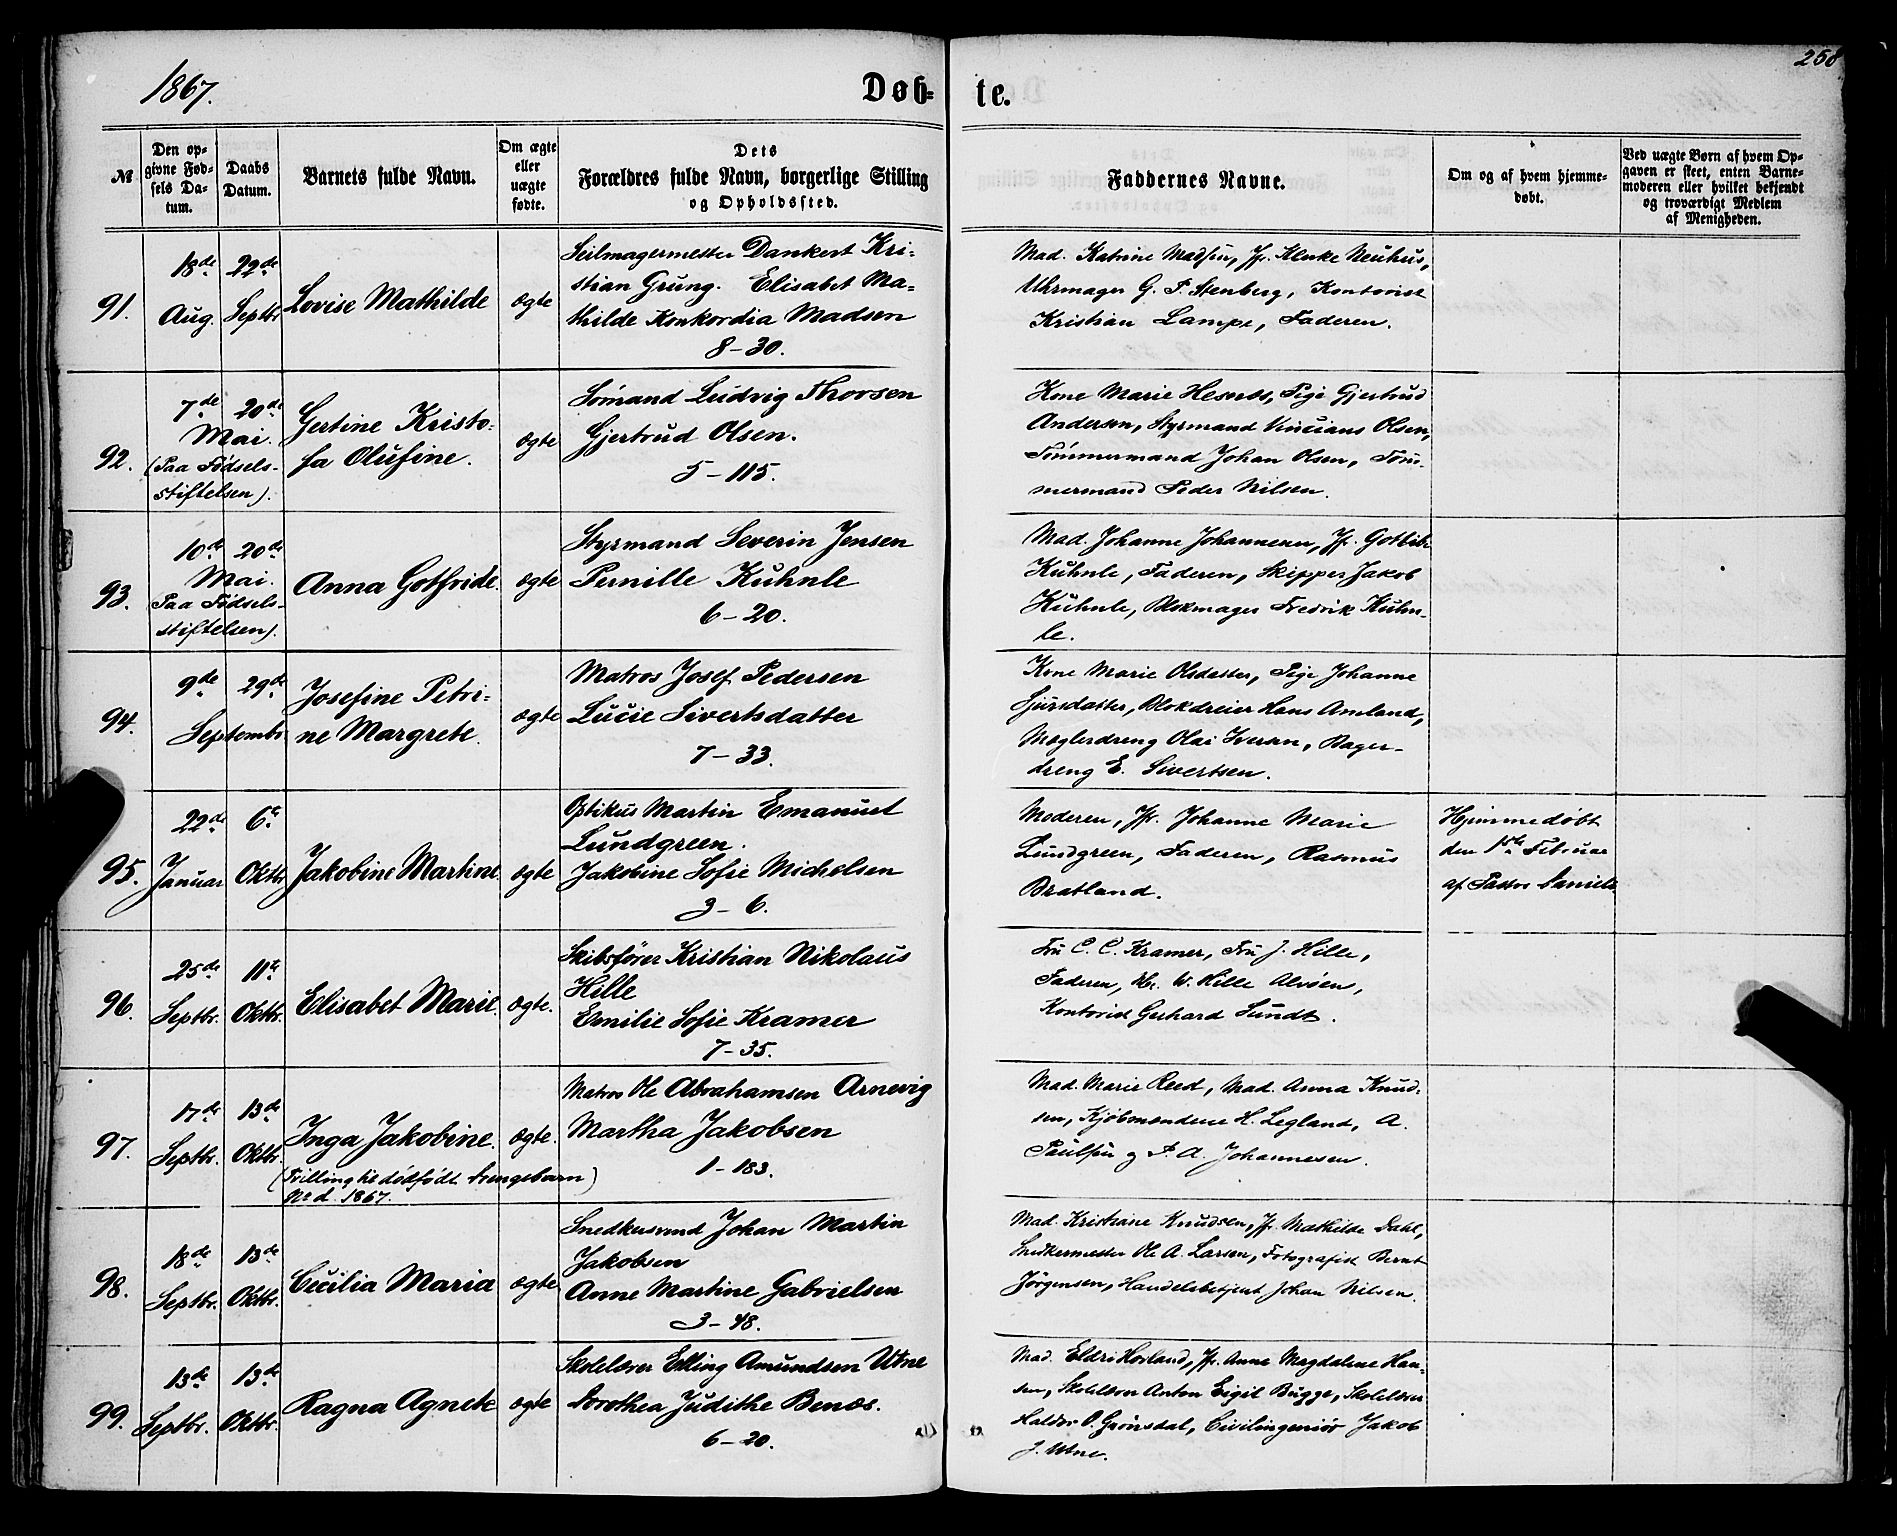 1867.
Døb-
te.
258
№
Den op-
givne Fød-
sels Da-
tum.
Daabs
Datum.
Barnets fulde Navn.
Om ægte
eller
uægte
fødte.
Dets
Forældres fulde Navn, borgerlige Stilling
og Opholdssted.
Faddernes Navne.
Om og af hvem hjemme-
døbt.
Ved uægte Børn af hvem Op-
gaven er skeet, enten Barne-
moderen eller hvilket bekjendt
og troværdigt Medlem
af Menigheden.
91.
18de
Aug.
22de
Septbr
Lovise Mathilde
ægte
Seilmagermester Dankert Kri-
stian Grung. Elisabet Ma-
thilde Konkordia Madsen
8-30.
Mad. Katrine Madsen, Jfr. Klenke Neuhus,
Uhrmager G. P. Stenberg, Kontorist
Kristian Lampe, Faderen.
92.
7de 20de
Mai.
(Paa Fødsels-
stiftelsen).
Gertine Kristo-
fa Olufine.
ægte
Sömand Ludvig Thorsen
Gjertrud Olsen.
5-115.
Kone Marie Hesnes, Pige Gjertrud
Andersen, Styrmand Olsen,
Tömmermand Johan Olsen, Töm-
mermand Peder Nilsen.
93.
10de 20de
Mai.
Paa Fødsels-
stiftelsen).
Anna Gotfride.
ægte
Styrmand Severin Jensen
Pernille Kuhnle
6-20.
Mad. Johanne Johannesen, Jfr.
Kuhnle, Faderen, Skipper Jakob
Kuhnle, Blokmager Fredrik Kuhn-
le.
94.
9de 29de
Septembr
Josefine Petri-
ne Margrete.
ægte
Matros Josef Pedersen
Lucie Sivertsdatter
7-33.
Kone Marie Olsdatter, Pige Johanne
Sjursdatter, Blokdreier Hans Amland,
Mæglerdreng Olai Iversen, Bager-
dreng E. Sivertsen.
95.
22de
Januar
6te
Oktbr
Jakobine Martine
ægte
Optikus Martin Emanuel
Lundgreen.
Jakobine Sofie Michelsen
3-6.
Moderen, Jfr. Johanne Marie
Lundgreen, Faderen, Rasmus
Bratland.
Hjemmedøbt
den Februar
af Pastor Daniels.
96.
25de
Septbr.
11te
Oktbr.
Elisabet Marie.
ægte.
Skibsfører Kristian Nikolaus
Hille
Emilie Sofie Kramer
7-35.
Fru C. C. Kramer, Fru J. Hille,
Faderen, Hr. W. Hille Alvöen,
Kontorist Gerhard Sundt.
97.
17de
Septbr.
13de
Oktbr.
Inga Jakobine.
(Tvilling til dødfødt Drengebarn)
No d. 1867.
ægte.
Matros Ole Abrahamsen Arnevig
Martha Jakobsen
1-183.
Mad. Marie Reed, Mad. Anna Knud-
sen, Kjøbmændene H. Legland, A.
Paulsen og P. A. Johannesen.
98.
18de
Septbr.
13de
Oktbr.
Cecilia Maria
ægte
Snedkersvend Johan Martin
Jakobsen
Anne Martine Gabrielsen
3-48.
Mad. Kristiane Knudsen, Jfr. Mathilde Dahl,
Snedkermester Ole A. Larsen, Fotografist Bernt
Jørgensen, Handelsbetjent Johan Nilsen.
99.
13de
Septbr.
13de
Oktbr.
Ragna Agnete
ægte
Skolelærer Elling Amundsen Utne
Dorothea Judithe Benæs.
6-20.
Mad. Eldri Horland, Jfr. Anne Magdalene Han-
sen, Skolelærer Anton Eigil Bugge, Skolelærer
Haldor O. Grönsdal, Civilingeniör Jakob
J. Utne.